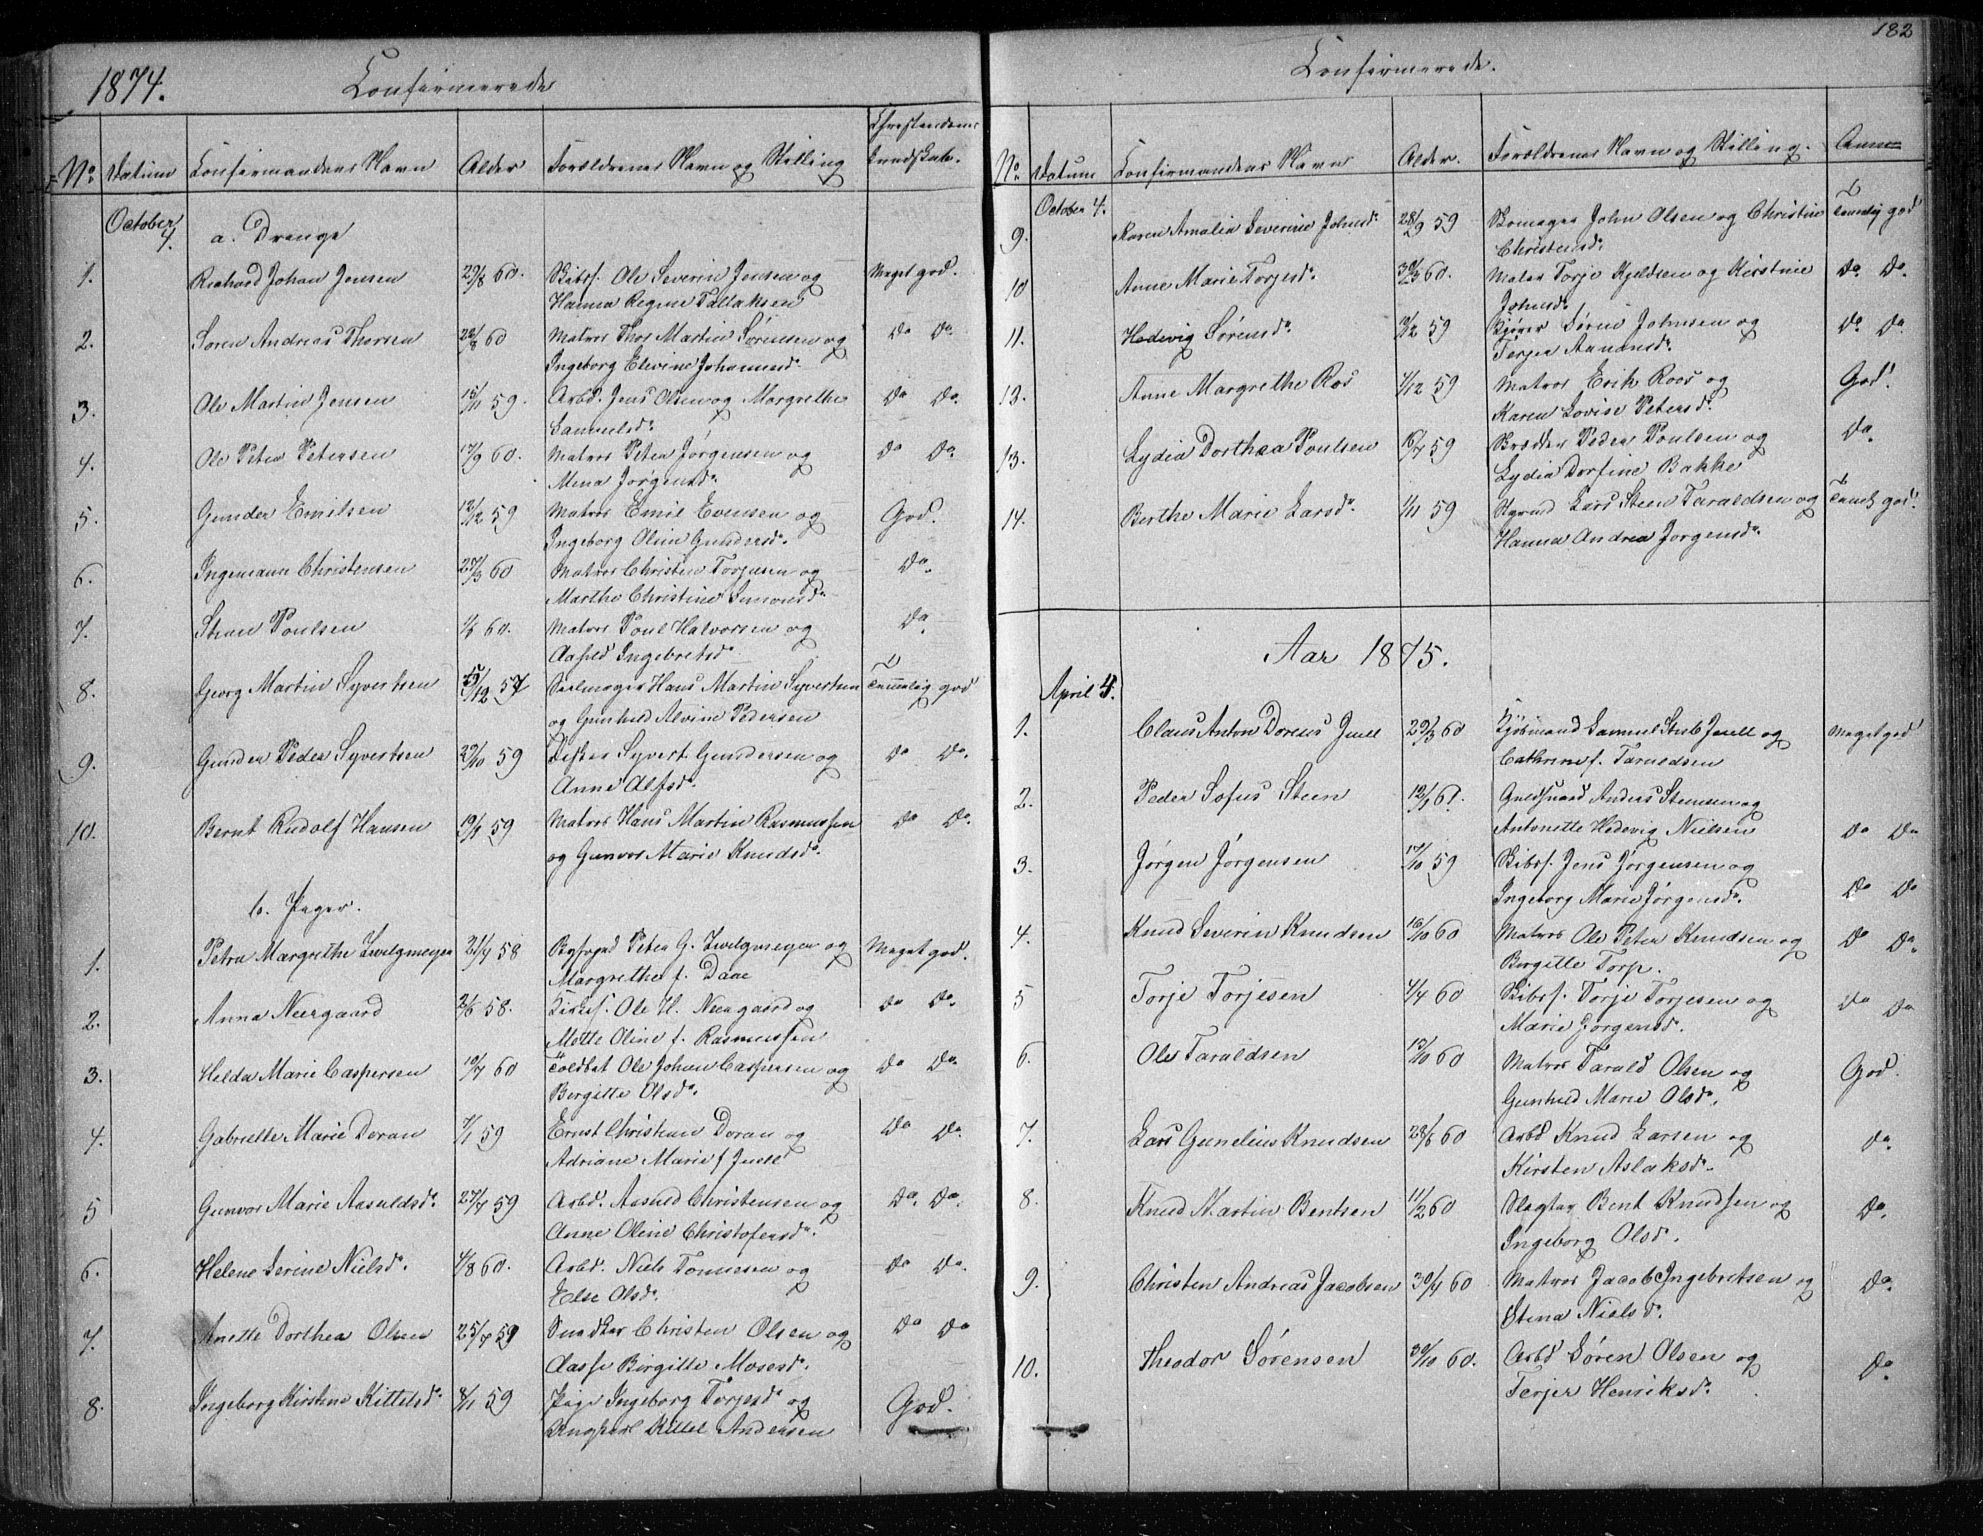 1874. Confirmerede
No Datum Confirmandens Navn Alder Forældrenes Navn og Stilling Christendoms Kundskab.
October 4. a. Drenge
1. Richard Johan Jensen 29/8 60. Skibsf. Ole Severin Jensen og Meget god.
Hanna Regine Tallaksen
2. Søren Andreas Thorsen 28/8 60 Matros Thor Martin Sørensen og Do Do
Ingeborg Elevine Johannesd.
3. Ole Martin Jensen 15/11 59. Arbd. Jens Olsen og Margrethe Do Do.
Samuelsd.
4. Ole Peter Petersen 17/9 60. Matros Peter Jørgensen og Do Do.
Mina Jørgensd.
5. Gunder Emilsen 12/12 59 Matros Emil Evensen og God.
Ingeborg Oline Gundersd.
6. Ingemann Christensen 27/3 60 Matros Christen Torjusen og Do.
Marthe Christine Simonsd.
7. Stian Poulsen 60. Matros Poul Halvorsen og Do.
Aasild Ingebretsd.
8. Georg Martin Syvertsen /12 57 Seilmager Hans Martin Syvertsen Temmelig god
og Gunhild Alvine Pedersen
9. Gunder Peder Syvertsen 29/10 59 Fisker Syvert Gundersen og Do Do.
Anne Alfsd.
10. Bernt Rudolf Hansen 59 Matros Hans Martin Rasmussen Do Do.
og Gunvor Marie Knudsd.
b. Piger.
1. Petra Margrethe Zwilgmeyer 21/4 58 Byfoged Peter G. Zwilgmeyer og Meget god.
Margrethe f. Daae
2. Anna Neergaard 2/6 58. Ole H. Neergaard og Do Do.
Mette Oline f. Rasmussen
3. Helda Marie Caspersen 10/4 60 Toldbet Ole Johan Caspersen og Do Do.
Birgitte Olsd.
4. Gabrielle Marie Doran 7/1 59 Ernst Christian Doran og Do Do.
Adriane Marie f Juell
5 Gunvor Marie Aasuldsd. 27/4 59 Arbd. Aasuld Christensen og Do. Do.
Anne Oline Christofersd.
6. Helene Serine Nielsd. 4/8 60. Arbd. Niels Tønnesen og Do Do.
Else Olsd.
7. Anette Dorthea Olsen 25/4 59 Snedker Christen Olsen og Do Do
Aasse Birgitte Mosesd.
8. Ingeborg Kirstine Kittelsd. 8/1 59 Pige Ingeborg Torjesd. og God.
Ungkarl Kittel Andersen
182
Confirmerede.
No. Datum Confirmandens Navn Alder. Forældrenes Navn og Stilling. Anm
October 4.
9. Karen Amalia Severine Johnsd. 28/9 59 Bømager John Olsen og Christine Temmelig god
Christensd.
10 Anne Marie Torjesd. 30/3 60. Matros Torje Kjeldsen og Kirstine Do Do.
Johnsd.
11. Hedevig Sørensd. /12 59 Søren Johnsen og Do Do.
Terjer Aanonsd.
12. Anne Margrethe Ros /12 59 Matros Erik Roos og God.
Karen Lovise Petersd.
13. Lydia Dorthea Poulsen /4 59 Peder Poulsen og Do.
Lydia Dorfine Bakke
14. Berthe Marie Larsd. 1/11 59 Styrmd Lars Steen Taraldsen og Temml god.
Hanna Andrea Jørgensd.
Aar 1875.
April 4.
1. Claus Anton Doreus Juell 29/3 60 Kjøbmand Samuel Stub Juell og Meget god
Cathrine f. Taraldsen
2. Peder Sofus Steen 12/1 61. Guldsmed Anders Steensen og
Antonette Hedevig Nielsen Do Do
3. Jørgen Jørgensen /10 59 Skibsf. Jens Jørgensen og
Ingeborg Marie Jørgensd. Do Do
4. Knud Severin Knudsen 16/10 60 Matros Ole Peter Knudsen og Do Do.
Birgitte Torp.
5 Torje Torjesen 4/4 60 Skibsf. Torje Torjesen og Do Do
Marie Jørgensd.
6. Ole Taraldsen /10 60 Matros Tarald Olsen og God.
Gunhild Marie Olsd.
7. Lars Gunelius Knudsen 28/8 60 Arbd Knud Larsen og Do.
Kirsten Aslaksd.
8. Knud Martin Bentsen 11/2 60 Slagter Bent Knudsen og Do.
Ingeborg Olsd.
9. Christen Andreas Jacobsen 30/4 60 Matros Jacob Ingebretsen og Do.
Stina Nielsd.
10. Theodor Sørensen 30/10 60. Arbd Søren Olsen og Do.
Terjer Henriksd.